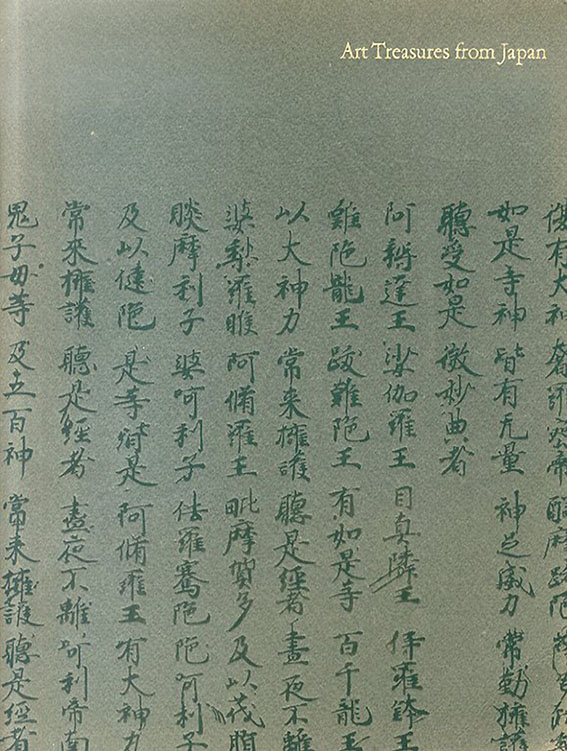 Art Treasures from Japan
如是等神 皆有无量 神足威力 常勤擁護
聽受如是 微妙典者
阿耨達王 娑伽羅王 目真隣王 伊羅鉢王
難陀龍王 跋難陀王 有如是等 百千龍王
以大神力 常来擁護 聽是經者 晝夜不離
婆梨羅睺 阿脩羅王 毗摩質多 及以茂脂
睒摩利子 婆呵利子 佉羅騫陀 陀呵利子
及以健陀 是等皆是 阿脩羅王 有大神力
常來擁護 聽是經者 晝夜不離 呵利帝南
鬼子母等 及五百神 常来擁護 聽是經者